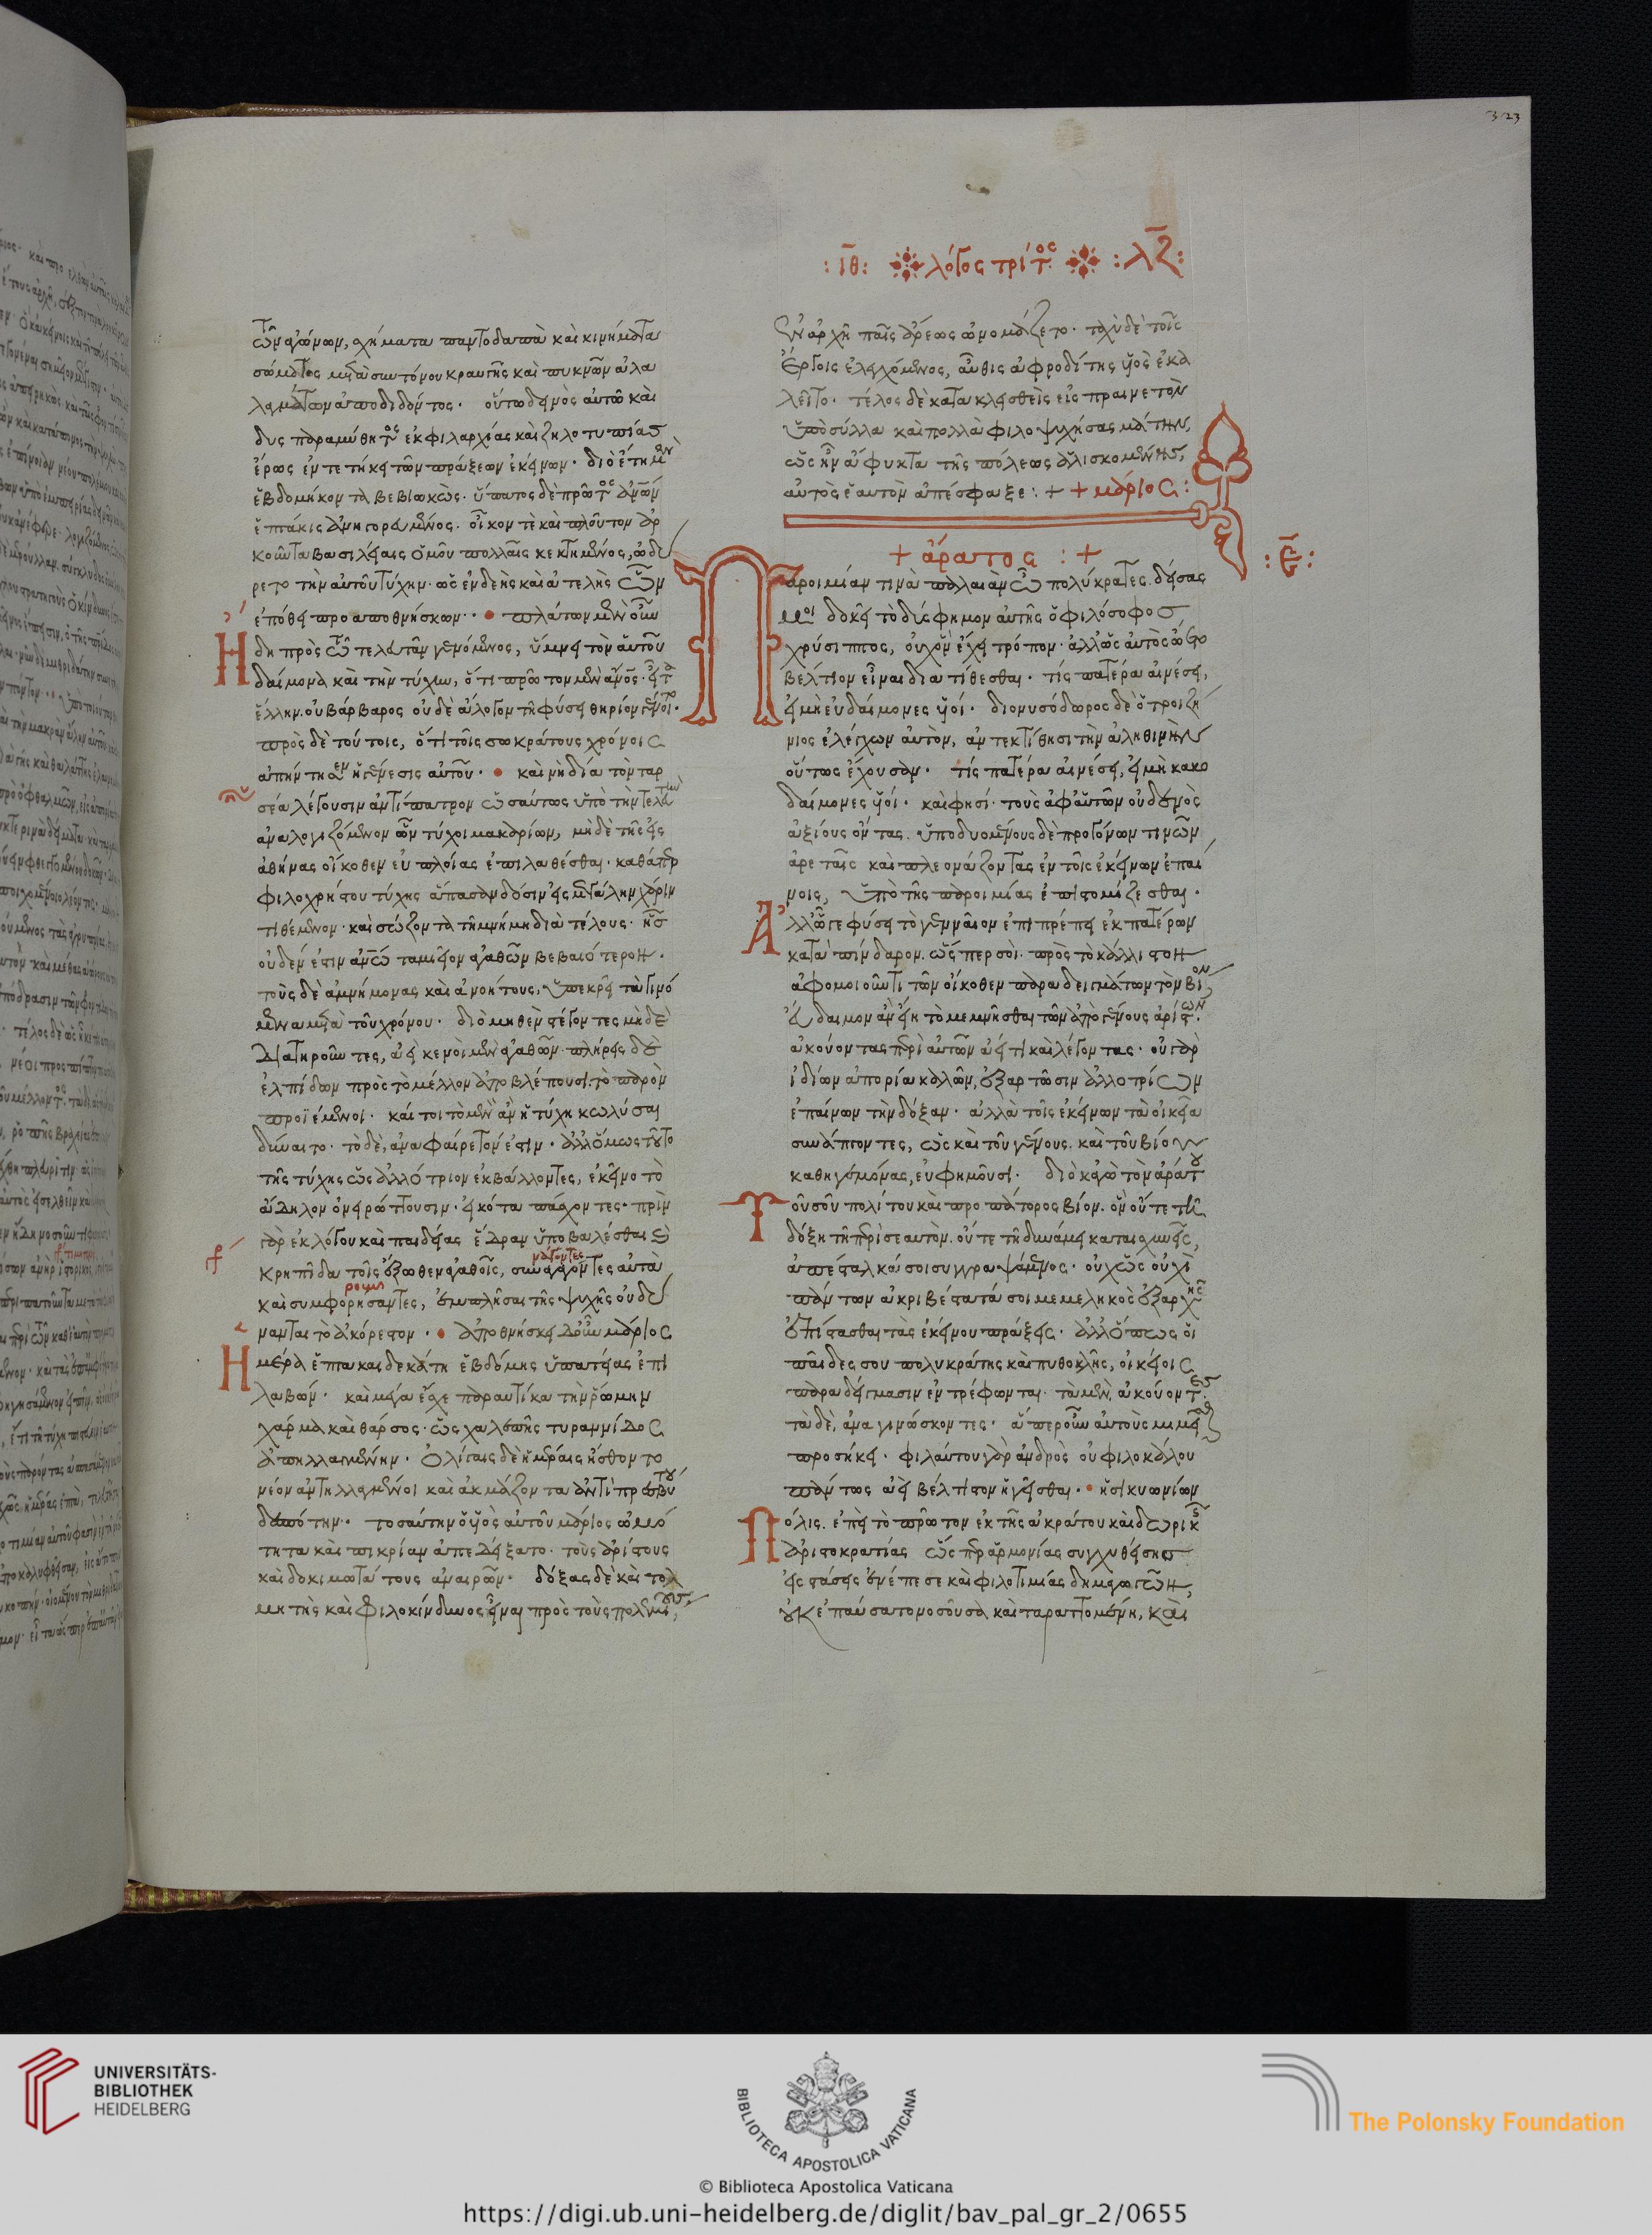 :ιθ: λόγος τρίτος :λζ:
τῶν ἀγώνων, σχήματα παντοδαπὰ καὶ κινήματα
σώματος μετὰ συντόνου κραυγῆς καὶ πυκνῶν ἀλα
λαγμάτων ἀποδιδόντος· οὕτω δεινὸς αὐτῶ καὶ
δυσπαραμύθητος ἐκ φιλαρχίας καὶ ζηλοτυπίας
ἔρως ἐντετήκει τῶν πράξεων ἐκείνων· διὸ ἔτη μὲν
ἑβδομήκοντα βεβιωκὼς· ὕπατος δὲ πρῶτος ἀνων
ἑπτάκις ἀνηγορευμένος· οἶκον τὲ καὶ πλοῦτον ἀρ
κοῦντα βασιλείαις ὁμοῦ πολλαῖς κεκτημένος, ὠδύ
ρετο τὴν αὑτοῦ τύχην· ὡς ἐνδεὴς καὶ ἀτελὴς ὧν
ἐπόθει προαποθνήσκων· πλάτων μὲν οὖν
ἤδη πρὸς τῶ τελευτᾶν γενόμενος, ὕμνει τὸν αὑτοῦ
δαίμονα καὶ τὴν τύχην, ὅτι πρῶτον μὲν ἄνος· εἶτα
ἕλλην· οὐ βάρβαρος οὐδὲ ἄλογον τῆ φύσει θηρίον γένοιτο·
πρὸς δὲ τούτοις, ὅτι τοῖς σωκράτους χρόνοις
ἀπήντησεν ἡ γένεσις αὐτοῦ· καὶ νὴ δία τὸν ταρ
σέα λέγουσιν ἀντίπατρον ὡσαύτως ὑπὸ τὴν τελευτὴν
ἀναλογιζόμενον ὧν τύχοι μακαρίων, μηδὲ τῆς εἰς
ἀθήνας οἴκοθεν εὐπλοίας ἐπιλαθέσθαι· καθάπερ
φιλοχρήστου τύχης ἅπασαν δόσιν εἰς μεγάλην χάριν
τιθέμενον· καὶ σώζοντα τῆ μνήμη διὰ τέλους· ἧς
οὐδέν ἐστιν ἀνω ταμιεῖον ἀγαθῶν βεβαιότερον·
τοὺς δὲ ἀμνήμονας καὶ ἀνοήτους, ὑπεκρεῖ τὰ γινό
μενα μετὰ τοῦ χρόνου· διὸ μηθὲν στέγοντες μηδὲ
διατηροῦντες, ἀεὶ κενοὶ μὲν ἀγαθῶν· πλήρεις δὲ
ἐλπίδων πρὸς τὸ μέλλον ἀποβλέπουσι· τὸ παρὸν
προϊέμενοι· καίτοι τὸ μὲν ἂν ἡ τύχη κωλύσαι
δύναιτο· τὸ δὲ, ἀναφαίρετόν ἐστιν· ἀλλ' ὅμως τοῦτο
τῆς τύχης ὡς ἀλλότριον ἐκβάλλοντες, ἐκεῖνο τὸ
ἄδηλον ὀνειρώττουσιν· εἰκότα πάσχοντες· πρὶν
γὰρ ἐκ λόγου καὶ παιδείας ἕδραν ὑποβαλέσθαι καὶ
κρηπῖδα τοῖς ἔξωθεν ἀγαθοῖς, συναγαγόντες αὐτὰ
καὶ συμφορήσαντες, ἐμπλῆσαι τῆς ψυχῆς οὐ δύ
νανται τὸ ἀκόρεστον· ἀποθνήσκει δ' οὖν μάριος
ἡμέρα ἑπτακαιδεκάτη ἑβδόμης ὑπατείας ἐπι
λαβών· καὶ μέγα ἔσχε παραυτίκα τὴν ῥώμην
χάρμα καὶ θάρσος· ὡς χαλεπῆς τυραννίδος
ἀπηλλαγμένην· ὀλίγαις δὲ ἡμέραις ἤσθοντο
νέον ἀντηλλαγμένοι καὶ ἀκμάζοντα ἀντὶ πρεσβύτου
δεσπότην· τοσαύτην ὁ υἱὸς αὐτοῦ μάριος ὠμό
τητα καὶ πικρίαν ἀπεδείξατο· τοὺς ἀρίστους
καὶ δοκιμωτάτους ἀναιρῶν· δόξας δὲ καὶ τολ
μητὴς καὶ φιλοκίνδυνος εἶναι πρὸς τοὺς πολεμίους,
ἐν ἀρχῆ παῖς ἄρεως ὠνομάζετο· ταχὺ δὲ τοῖς
ἔργοις ἐλεγχόμενος, αὖθις ἀφροδίτης υἱὸς ἐκα
λεῖτο· τέλος δὲ κατακλεισθεὶς εἰς πραινετὸν
ὑπὸ σύλλα καὶ πολλὰ φιλοψυχήσας μάτην,
ὡς ἦν ἄφυκτα τῆς πόλεως ἁλισκομένης,
αὐτὸς ἑαυτὸν ἀπέσφαξε: + + μάριος:
+ ἄρατος : + :ε:
Παροιμίαν τινὰ παλαιὰν ὦ πολύκρατες· δείσας
μοι δοκεῖ τὸ δύσφημον αὐτῆς ὁ φιλόσοφος
χρύσιππος, οὐχ ὃν ἔχει τρόπον· ἀλλ' ὡς αὐτὸς ὤετο
βέλτιον εἶναι διατίθεσθαι· τίς πατέρα αἰνέσει,
εἰ μὴ εὐδαίμονες υἱοί· διονυσόδωρος δὲ ὁ τροιζή
νιος ἐλέγχων αὐτὸν, ἀντεκτίθησι τὴν ἀληθινὴν
οὕτως ἔχουσαν· τίς πατέρα αἰνέσει, εἰ μὴ κακο
δαίμονες υἱοί· καὶ φησί· τοὺς ἀφ' αὑτῶν οὐδενὸς
ἀξίους ὄντας· ὑποδυομένους δὲ προγόνων τινῶν
ἀρεταῖς καὶ πλεονάζοντας ἐν τοῖς ἐκείνων ἐπαί
νοις, ὑπὸ τῆς παροιμίας ἐπιστομίζεσθαι·
Ἀλλ' ὧ γε φύσει τὸ γενναῖον ἐπιπρέπει ἐκ πατέρων
κατὰ πίνδαρον· ὥσπερ σοὶ· πρὸς τὸ κάλλιστον
ἀφομοιοῦντι τῶν οἴκοθεν παραδειγμάτων τὸν βίον,
εὔδαιμον ἂν εἴη τὸ μεμνῆσθαι τῶν ἀπὸ γένους ἀρίστων·
ἀκούοντας περὶ αὐτῶν ἀεί τι καὶ λέγοντας· οὐ γὰρ
ἰδίων ἀπορία καλῶν, ἐξαρτῶσιν ἀλλοτρίων
ἐπαίνων τὴν δόξαν· ἀλλὰ τοῖς ἐκείνων τὰ οἰκεῖα
συνάπτοντες, ὡς καὶ τοῦ γένους· καὶ τοῦ βίου
καθηγεμόνας, εὐφημοῦσι· διὸ κἀγὼ τὸν ἀράτου
Τοῦ σοῦ πολίτου καὶ προπάτορος βίον· ὃν οὔτε τῆ
δόξη τῆ περὶ σεαυτὸν· οὔτε τῆ δυνάμει καταισχύνεις,
ἀπέσταλκά σοι συγγραψάμενος· οὐχ ὡς οὐχὶ
πάντων ἀκριβέστατά σοι μεμεληκὸς ἐξ ἀρχῆς
ἐπίστασθαι τὰς ἐκείνου πράξεις· ἀλλ' ὅπως οἱ
παῖδες σου πολυκράτης καὶ πυθοκλῆς, οἰκείοις
παραδείγμασιν ἐντρέφωνται· τὰ μὲν, ἀκούοντες·
τὰ δὲ, ἀναγινώσκοντες· ἅπερ οὖν αὐτοὺς μιμεῖσθαι
προσήκει· φιλαύτου γὰρ ἀνδρὸς οὐ φιλοκάλου
πάντως ἀεὶ βέλτιστον ἡγεῖσθαι· ἡ σικυωνίων
Πόλις· ἐπεὶ τὸ πρῶτον ἐκ τῆς ἀκράτου καὶ δωρικῆς
ἀριστοκρατίας ὥσπερ ἁρμονίας συγχυθείσης
εἰς στάσεις ἐνέπεσε καὶ φιλοτιμίας δημαγωγῶν,
οὐκ ἐπαύσατο νοσοῦσα καὶ ταραττομένη, καὶ
UNIVERSITÄTS-
BIBLIOTHEK
HEIDELBERG
BIBLIOTECA APOSTOLICA VATICANA
The Polonsky Foundation
© Biblioteca Apostolica Vaticana
https://digi.ub.uni-heidelberg.de/diglit/bav_pal_gr_2/0655